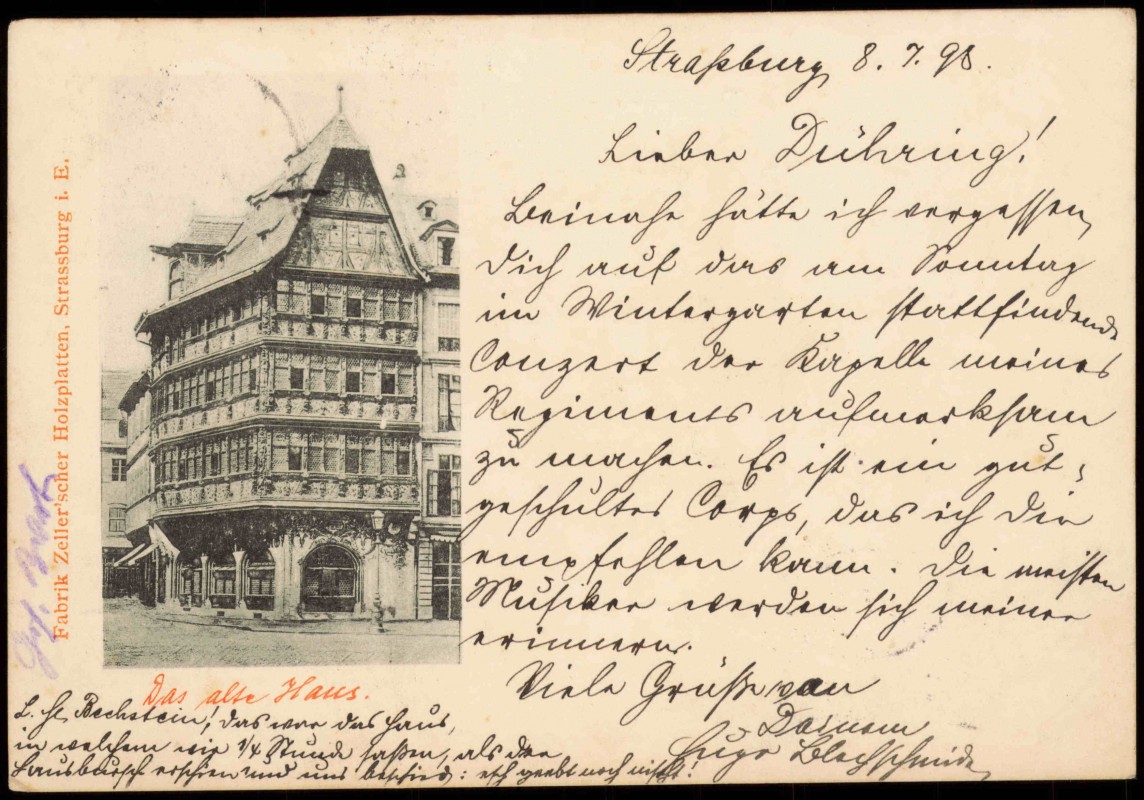 Straßburg 8. 7. 98.
Lieber Dühring!
Beinahe hätte ich vergessen,
Dich auf das am Sonntag
im Wintergarten stattfindende
Conzert der Kapelle meines
Regiments aufmerksam
zu machen. Es ist ein gut-
geschultes Corps, das ich Dir
empfehlen kann. Die meisten
Musiker werden sich meiner
erinnern.
Viele Grüße von
Deinem
Hugo Blechschmidt
Fabrik Zeller'scher Holzplatten, Strassburg i. E.
Das alte Haus.
L. H. Bechstein! Das war das Haus,
in welchem wir 3/4 Stunde saßen, als der
Hausbursch erschien und uns beschied: noch nicht!